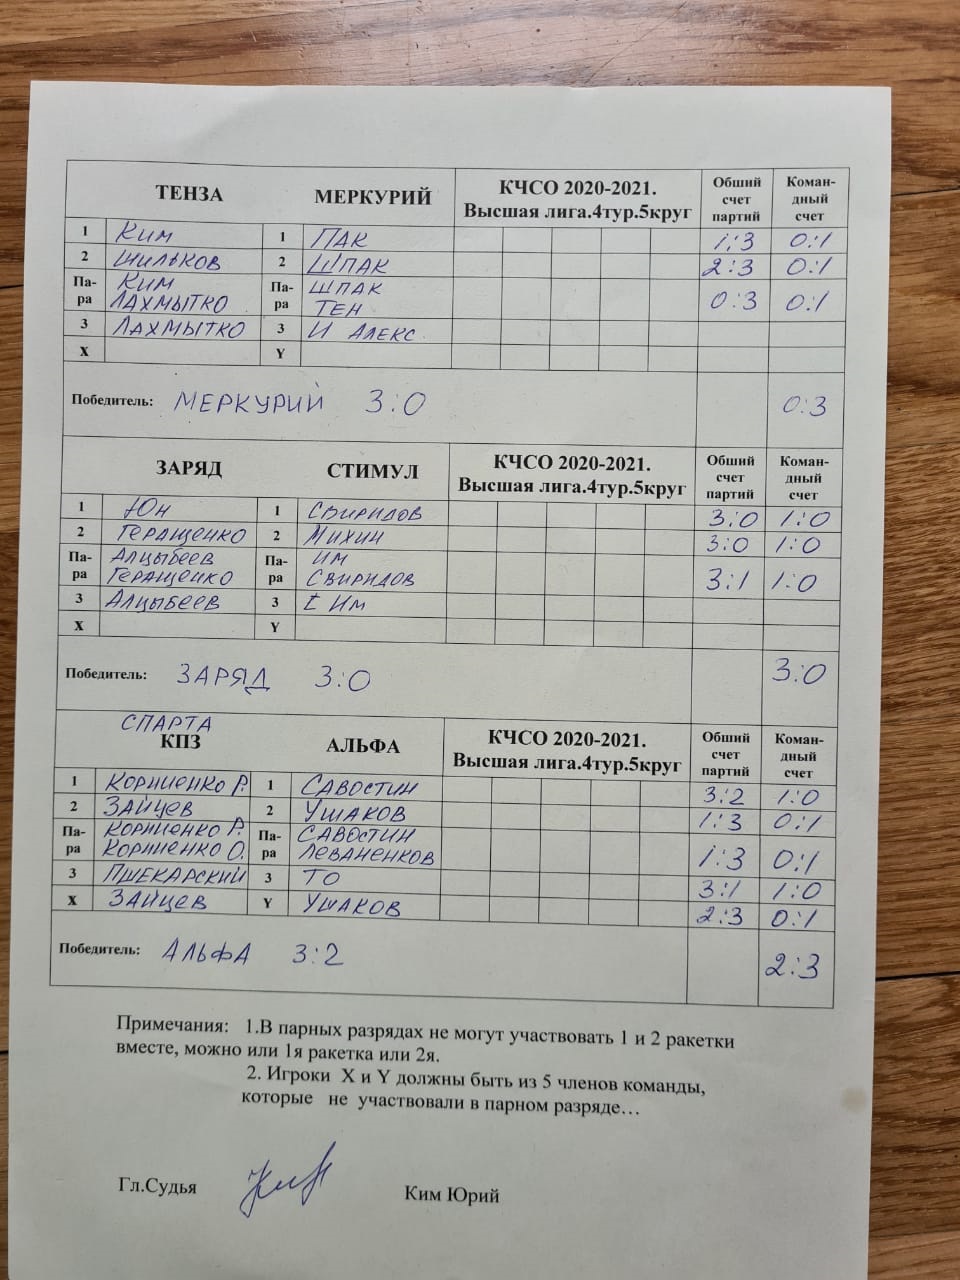 ТЕНЗА МЕРКУРИЙ КЧСО 2020-2021. Высшая лига.4тур.5круг Обший счет партий Коман-дный счет
1 Ким 1 ПАК 1:3 0:1
2 ШИЛЬКОВ 2 ШПАК 2:3 0:1
Па-ра Ким ЛАХМЫТКО Па-ра ШПАК ТЕН 0:3 0:1
3 ЛАХМЫТКО 3 И АЛЕКС.
X Y
Победитель: МЕРКУРИЙ 3:0 0:3
ЗАРЯД СТИМУЛ КЧСО 2020-2021. Высшая лига.4тур.5круг Обший счет партий Коман-дный счет
1 Юн 1 СВИРИДОВ 3:0 1:0
2 ГЕРАЩЕНКО 2 МИХИН 3:0 1:0
Па-ра АЛЦЫБЕЕВ ГЕРАЩЕНКО Па-ра ИМ СВИРИДОВ 3:1 1:0
3 АЛЦЫБЕЕВ 3 Им
X Y
Победитель: ЗАРЯД 3:0 3:0
СПАРТА
КПЗ АЛЬФА КЧСО 2020-2021. Высшая лига.4тур.5круг Обший счет партий Коман-дный счет
1 КОРНИЕНКО Р. 1 САВОСТИН 3:2 1:0
2 ЗАЙЦЕВ 2 УШАКОВ 1:3 0:1
Па-ра КОРНИЕНКО Р. КОРНИЕНКО О. Па-ра САВОСТИН ЛЕВАНЕНКОВ 1:3 0:1
3 ПШЕКАРСКИЙ 3 ТО 3:1 1:0
X ЗАЙЦЕВ Y УШАКОВ 2:3 0:1
Победитель: АЛЬФА 3:2 2:3
Примечания: 1.В парных разрядах не могут участвовать 1 и 2 ракетки
вместе, можно или 1я ракетка или 2я.
2. Игроки X и Y должны быть из 5 членов команды,
которые не участвовали в парном разряде…
Гл.Судья Ким Юрий